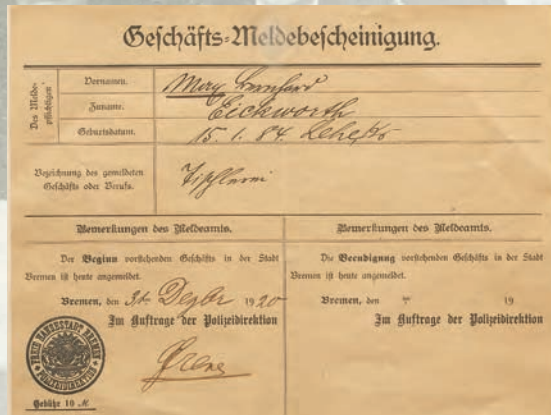 Geschäfts-Meldebescheinigung.
Des Melde-
pflichtigen:
Vornamen. Max Bernhard
Zuname. Eickworth
Geburtsdatum. 15. 1. 84.
Bezeichnung des gemeldeten
Geschäfts oder Berufs.
Tischlerei
Bemerkungen des Meldeamts.
Der Beginn vorstehenden Geschäfts in der Stadt
Bremen ist heute angemeldet.
Bremen, den 31. Dezbr 1920
Im Auftrage der Polizeidirektion
FREIE HANSESTADT BREMEN
POLIZEIDIREKTION
Gebühr 10 M
Bemerkungen des Meldeamts.
Die Beendigung vorstehenden Geschäfts in der Stadt
Bremen ist heute angemeldet.
Bremen, den 19
Im Auftrage der Polizeidirektion